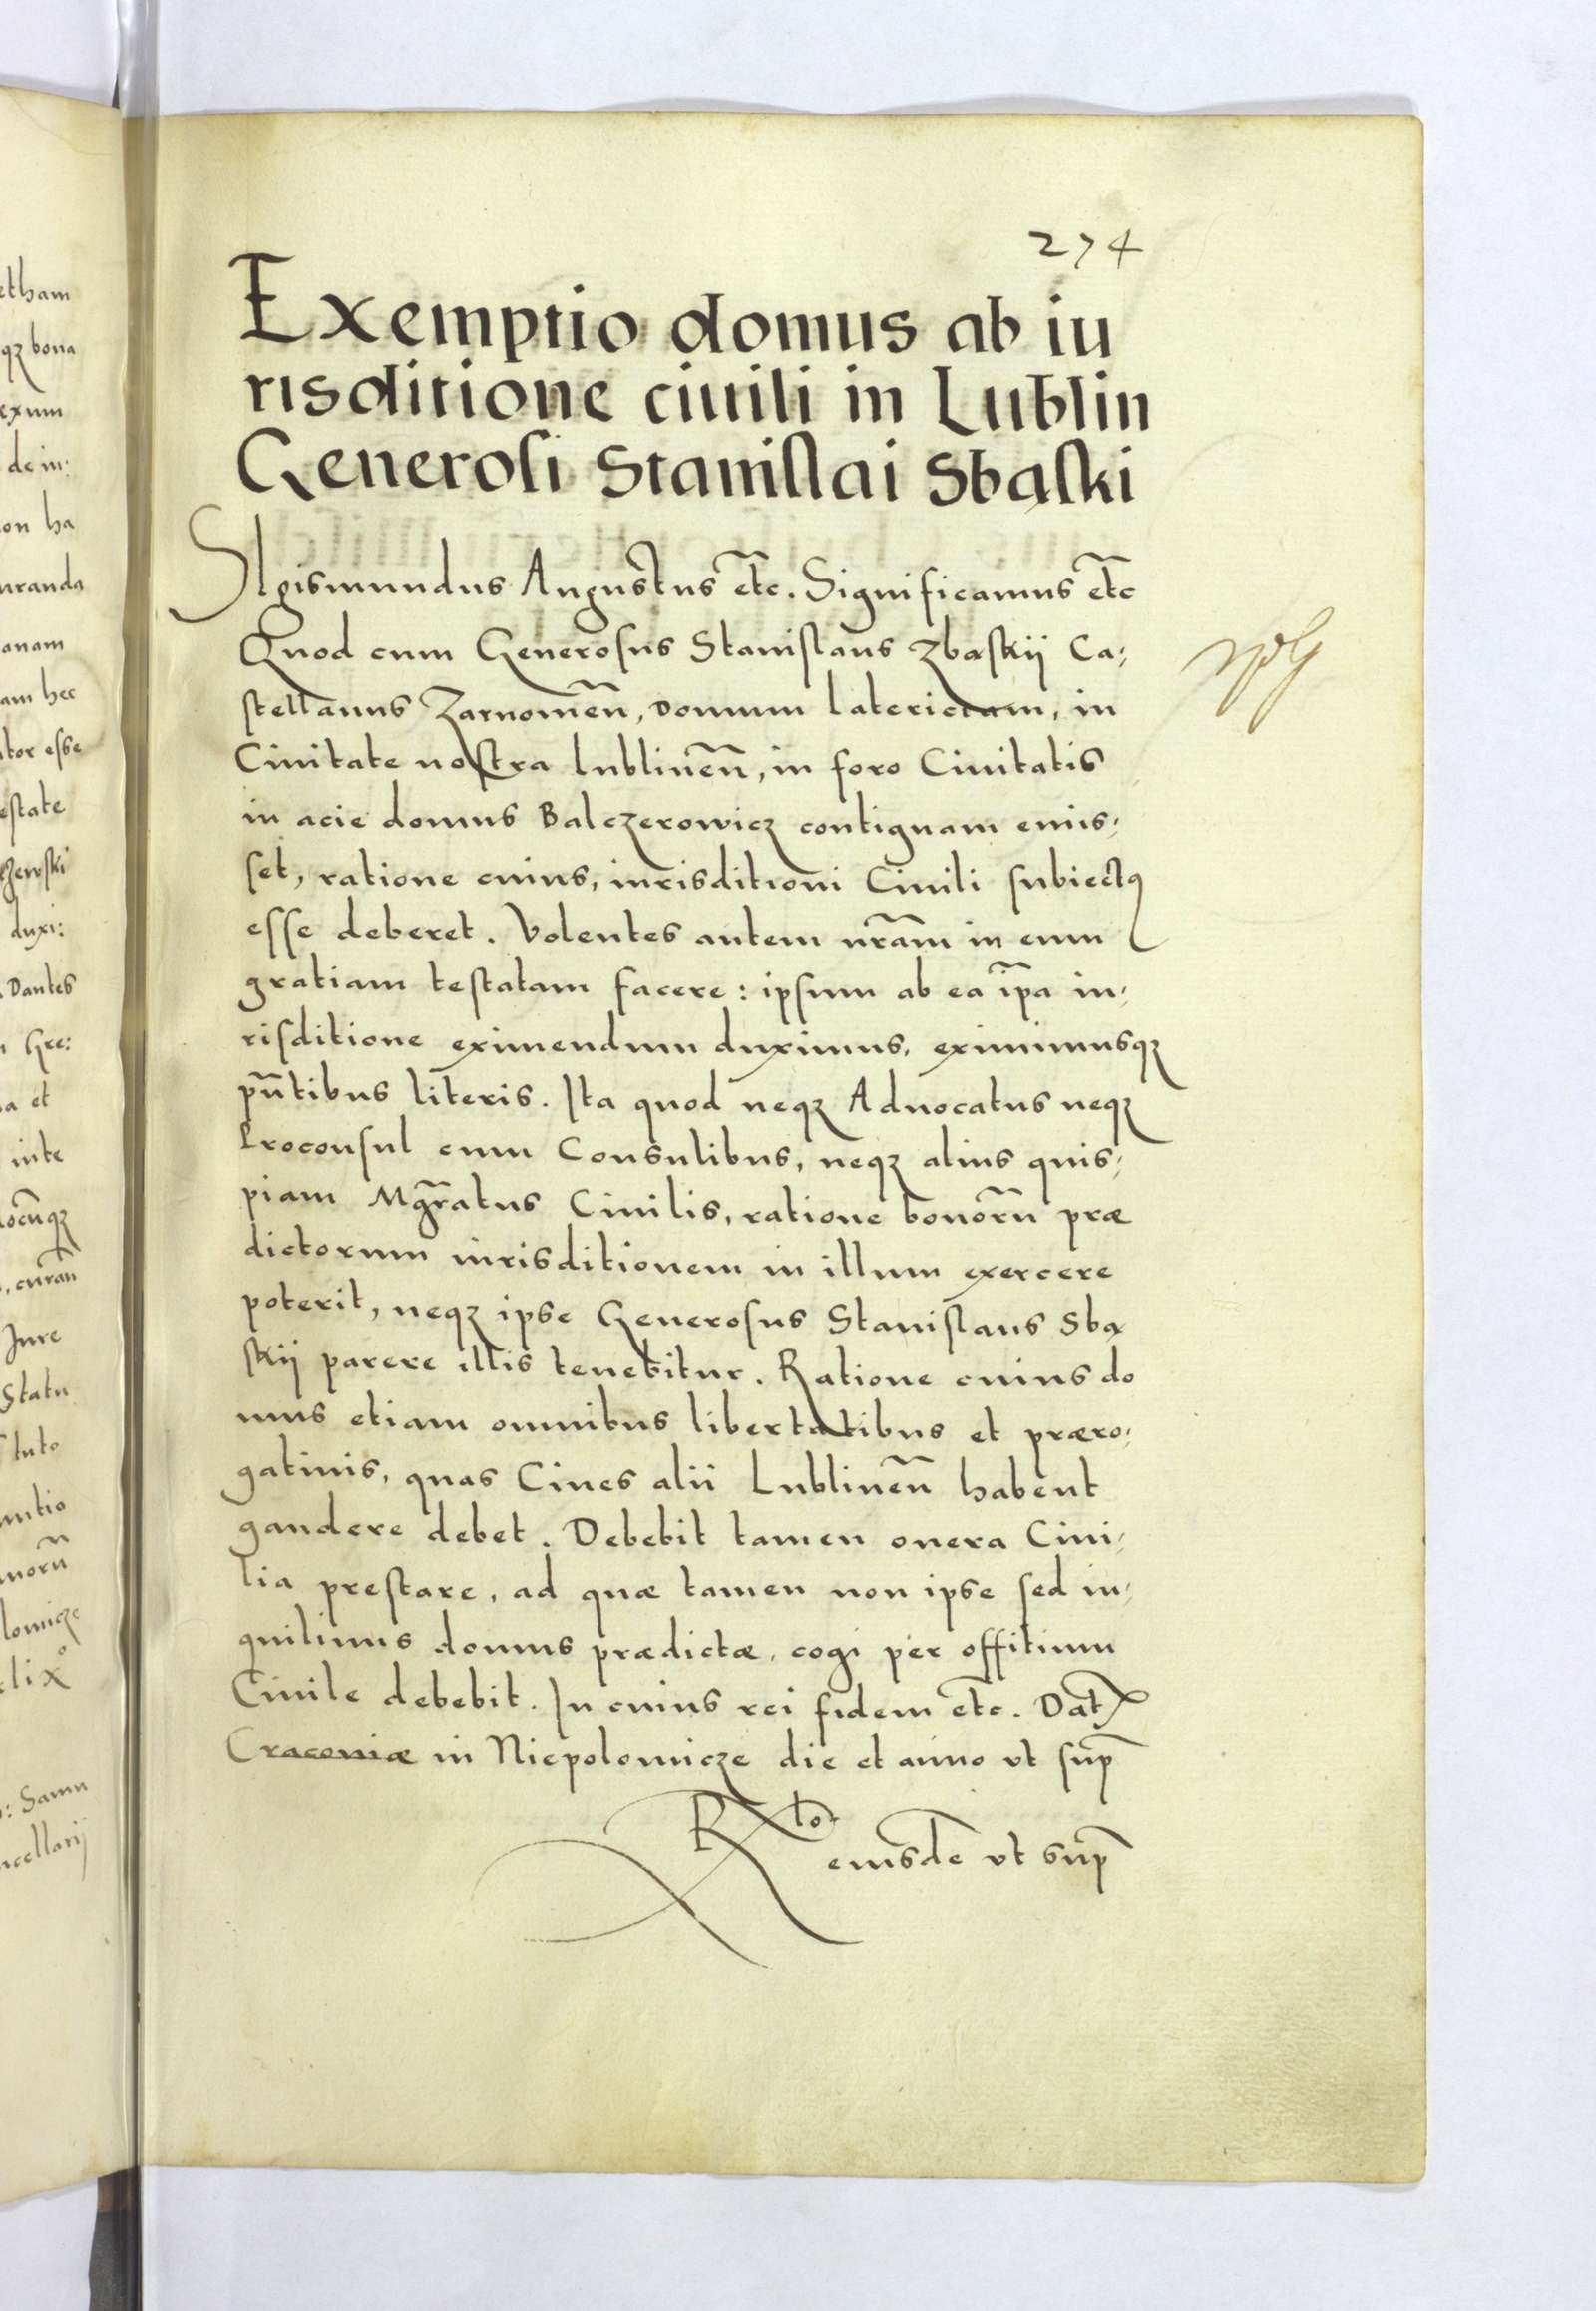 274
Exemptio domus ab iu
risditione ciuili in Lublin
Generosi Stanislai Sbąski
Sigismundus Augustus etc̃. Significamus etc̃
Quod cum Generosus Stanislaus Zbąskij Ca:
stellanus Zarnowen̄, domum latericeam, in
Ciuitate nostra lublinen̄, in foro Ciuitatis
in acie domus Balczerowicz contiguam emis:
set, ratione cuius, iurisditioni Ciuili subiectꝰ
esse deberet. Volentes autem nr̄am in eum
gratiam testatam facere: ipsum ab ea ip̄a iu:
risditione eximendum duximus, eximimusqꝫ
pn̄tibus literis. Ita quod neqꝫ Aduocatus neqꝫ
Proconsul cum Consulibus, neqꝫ alius quis:
piam Mgr̄atus Ciuilis, ratione bonorū præ
dictorum iurisditionem in illum exercere
poterit, neqꝫ ipse Generosus Stanislaus Sbą
skij parere illis tenebitur. Ratione cuius do
mus etiam omnibus libertatibus et præro:
gatiuis, quas Ciues alii Lublinen̄ habent
gaudere debet. Debebit tamen onera Ciui:
lia prestare, ad quæ tamen non ipse sed in:
quilinus domus prædictæ, cogi per offitium
Ciuile debebit. In cuius rei fidem etc̃. Dat
Cracouiæ in Niepolomicze die et anno vt sup̄
R̃to
eiusdē vt sup̄
etham
qꝫ bona
exum
de in:
on ha
uranda
anam
am hec
tor esse
estate
zewski
duxi:
Dantes
Gre:
a et
ocūqꝫ
, curan̄
Jure
Statu
tuto
norū
lomicze
lixº
: Samu
ncellarij